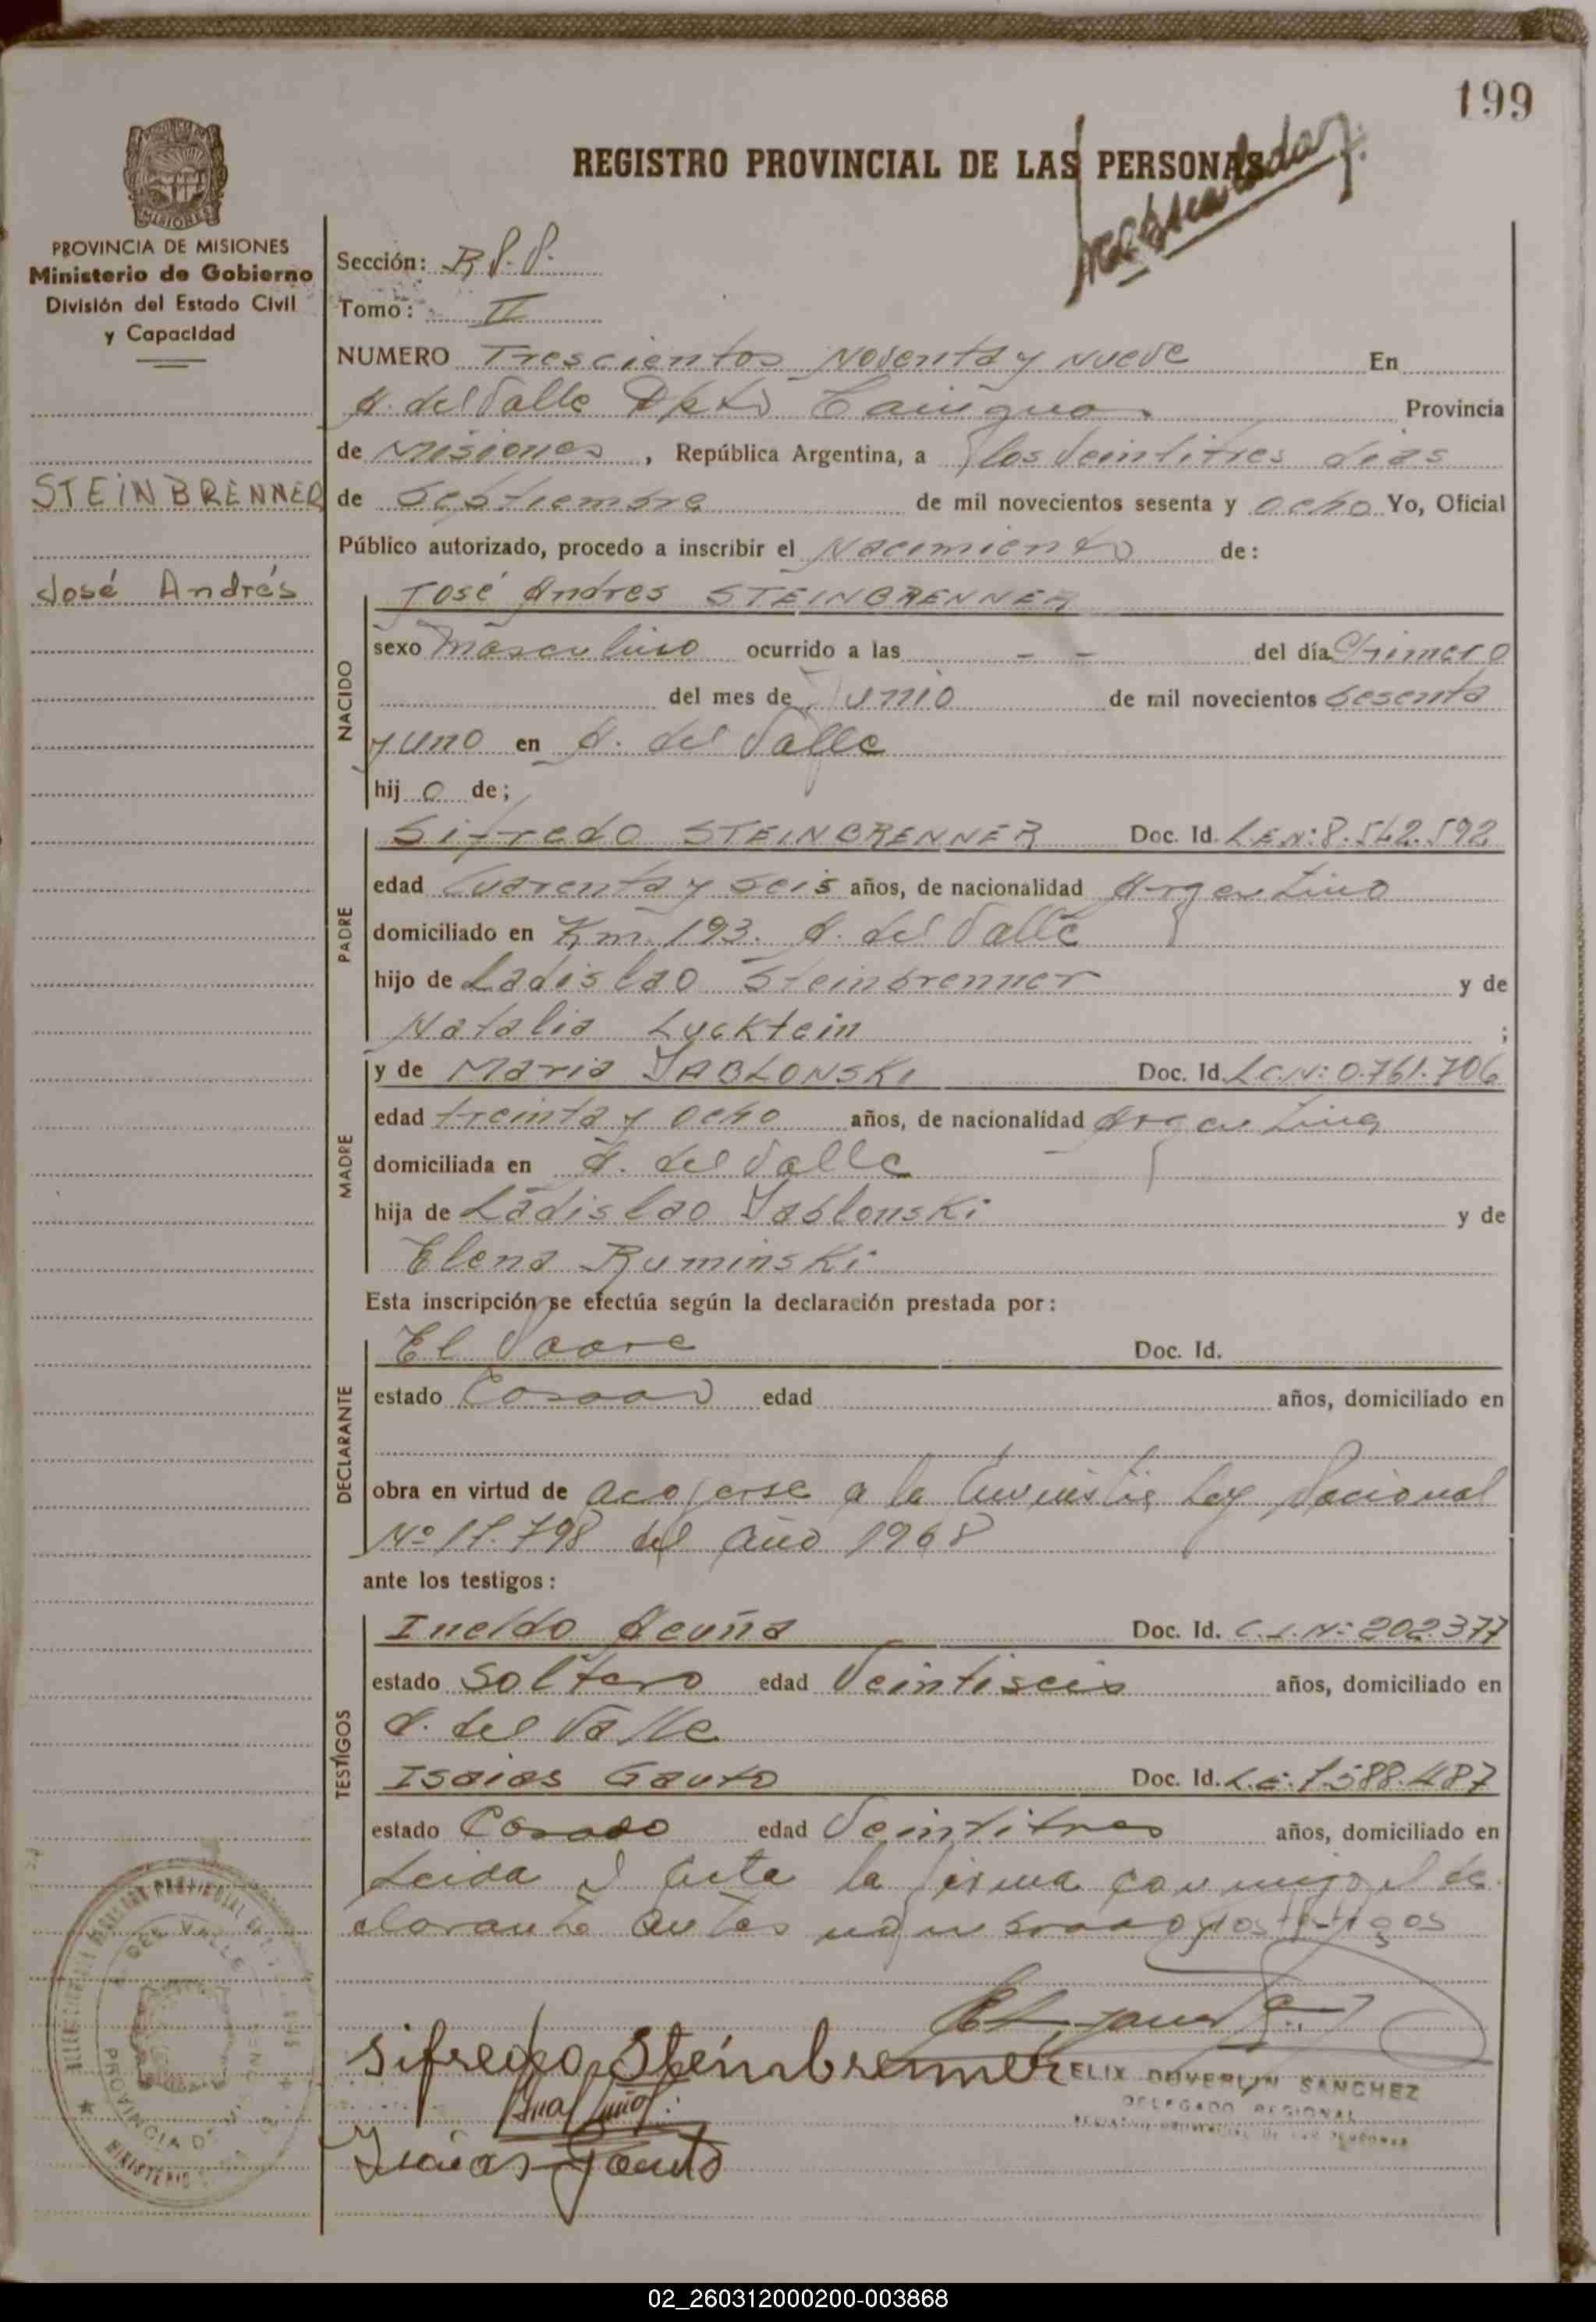 199
REGISTRO PROVINCIAL DE LAS PERSONAS
MISIONES
PROVINCIA DE MISIONES
Ministerio de Gobierno
División del Estado Civil
y Capacidad
STEINBRENNER
José Andrés
Sección: R.P.P.
Tomo: II
NUMERO Trescientos Noventa y Nueve En
A. del Valle Dpto Cainguas Provincia
de Misiones, República Argentina, a los Veintitres dias
de Septiembre de mil novecientos sesenta y ocho Yo, Oficial
Público autorizado, procedo a inscribir el Nacimiento de:
NACIDO
José Andres STEINBRENNER
sexo Masculino ocurrido a las - - del día Primero
del mes de Junio de mil novecientos sesenta
y uno en A. del Valle
hijo de;
PADRE
Sifredo STEINBRENNER Doc. Id. L.E.N: 8.542.592
edad Cuarenta y seis años, de nacionalidad Argentino
domiciliado en Km. 193. A. del Valle
hijo de Ladislao Steinbrenner y de
Natalia Lucktein ;
MADRE
y de Maria JABLONSKI Doc. Id. L.C.N: 0.761.706
edad treinta y ocho años, de nacionalidad Argentina
domiciliada en A. del Valle
hija de Ladislao Jablonski y de
Elena Ruminski
Esta inscripción se efectúa según la declaración prestada por:
DECLARANTE
El Padre Doc. Id.
estado Casado edad años, domiciliado en
obra en virtud de acojerse a la Amnistia Ley Nacional
Nº 17.798 del año 1968
ante los testigos:
TESTIGOS
Ineldo Acuña Doc. Id. C.I.N: 202.377
estado Soltero edad Veintiseis años, domiciliado en
A. del Valle
Isaias Gauto Doc. Id. L.E. 7.588.487
estado Casado edad Veintitres años, domiciliado en
Leida el Acta la firma conmigo el de
clarante antes nombrado y los testigos
Sifredo Steinbrenner
FELIX DUVERLIN SANCHEZ
DELEGADO REGIONAL
REGISTRO PROVINCIAL DE LAS PERSONAS
Isaias Gauto
DEL VALLE
PROVINCIA DE MISIONES
MINISTERIO
02_260312000200-003868